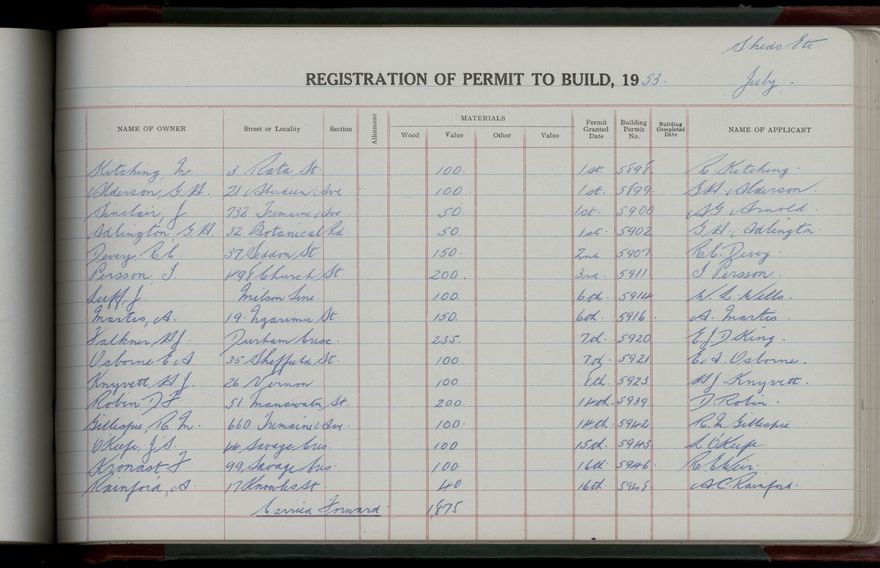 Sheds Etc
REGISTRATION OF PERMIT TO BUILD, 1953.
July.
NAME OF OWNER Street or Locality Section Allotment MATERIALS Wood Value Other Value Permit Granted Date Building Permit No. Building Completed Date NAME OF APPLICANT
Kitching, M. 3 Rata St. 100. 1st. 5898. R. Kitching.
Alderson, G.H. 21 Aberdeen Ave 100. 1st. 5899. G.H. Alderson.
Sinclair, J. 732 Tremaine Ave. 50. 1st. 5900 A.G. Arnold.
Adlington G.H. 52 Botanical Rd 50. 1st. 5902 G.H. Adlington.
Devey, R.C. 37 Seddon St 150. 2nd 5907 R.C. Devey.
Persson, I. 498 Church St 200. 3rd. 5911 I Persson.
J. Milson Line. 100. 6th. 5914 W.L. Wells.
Martis, A. 19. Ngarimu St. 150. 6th. 5916. A. Martis
Falkner, H.J. Durham Cresc. 235. 7th. 5920 E.J.D King.
Osborne E.A 35 Sheffield St. 100 7th. 5921 E.A. Osborne.
Knyvett, H.J. 26 Vernon 100 8th. 5923 H.J. Knyvett.
Robin D.F. 51 Manawatu St. 200. 14th. 5939 D. Robin.
Gillespie, R.M. 660 Tremaine Ave. 100. 14th. 5942 R.M. Gillespie
O'Keefe, J.S. 44 Savage Cres. 100 15th. 5943. O'Keefe
Kronast F. 99 Savage Cres. 100. 16th. 5946. R.E. Weir.
Rainford, A. 17 Knowles St. 40 16th. 5948. A.C. Rainford.
Carried Forward. 1,875